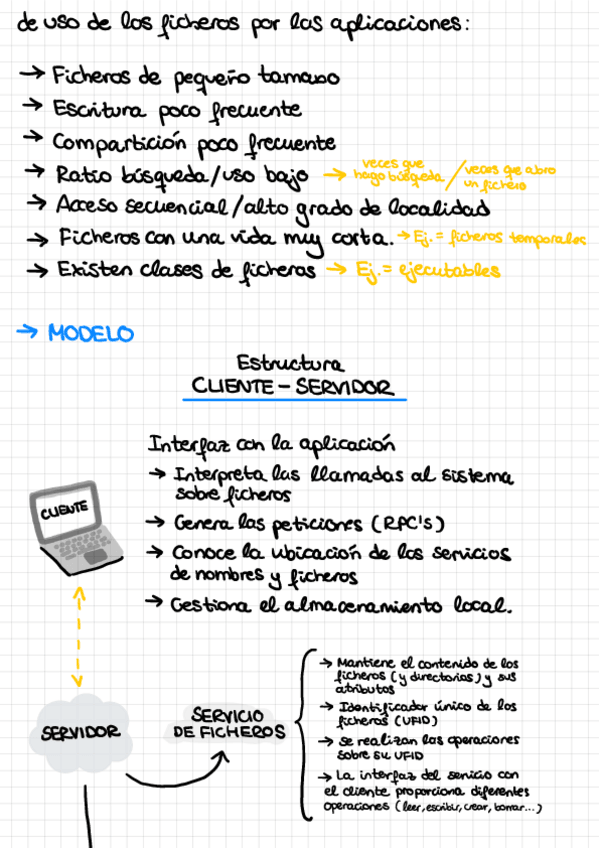 de uso de los ficheros por las aplicaciones:
→ Ficheros de pequeño tamaño
→ Escritura poco frecuente
→ Compartición poco frecuente
→ Ratio búsqueda/uso bajo → veces que hago búsqueda / veces que abro un fichero
→ Acceso secuencial/alto grado de localidad
→ Ficheros con una vida muy corta. → Ej. = ficheros temporales
→ Existen clases de ficheros → Ej. = ejecutables
→ MODELO
Estructura
CLIENTE - SERVIDOR
Interfaz con la aplicación
→ Interpreta las llamadas al sistema
sobre ficheros
CLIENTE
→ Genera las peticiones (RPC's)
→ Conoce la ubicación de los servicios
de nombres y ficheros
→ Gestiona el almacenamiento local.
SERVIDOR
SERVICIO
DE FICHEROS
→ Mantiene el contenido de los
ficheros (y directorios) y sus
atributos
→ Identificador único de los
ficheros (UFID)
→ Se realizan las operaciones
sobre su UFID
→ La interfaz del servicio con
el cliente proporciona diferentes
operaciones (leer, escribir, crear, borrar...)